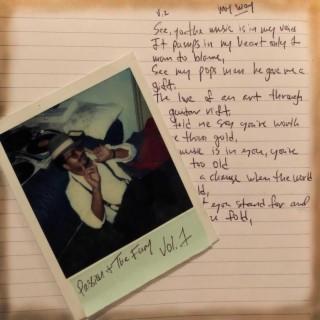 V.2 My way
See, you the music is in my veins
It pumps in my heart only I
mom to blame,
See my pops man he gave me a
gift.
The love of an art through
guitar riff.
told me say you're worth
e than gold,
music is in you, you're
too old
a change when the world
ld,
t you stand for and
u fold,
Passion & The Fury
Vol. 1